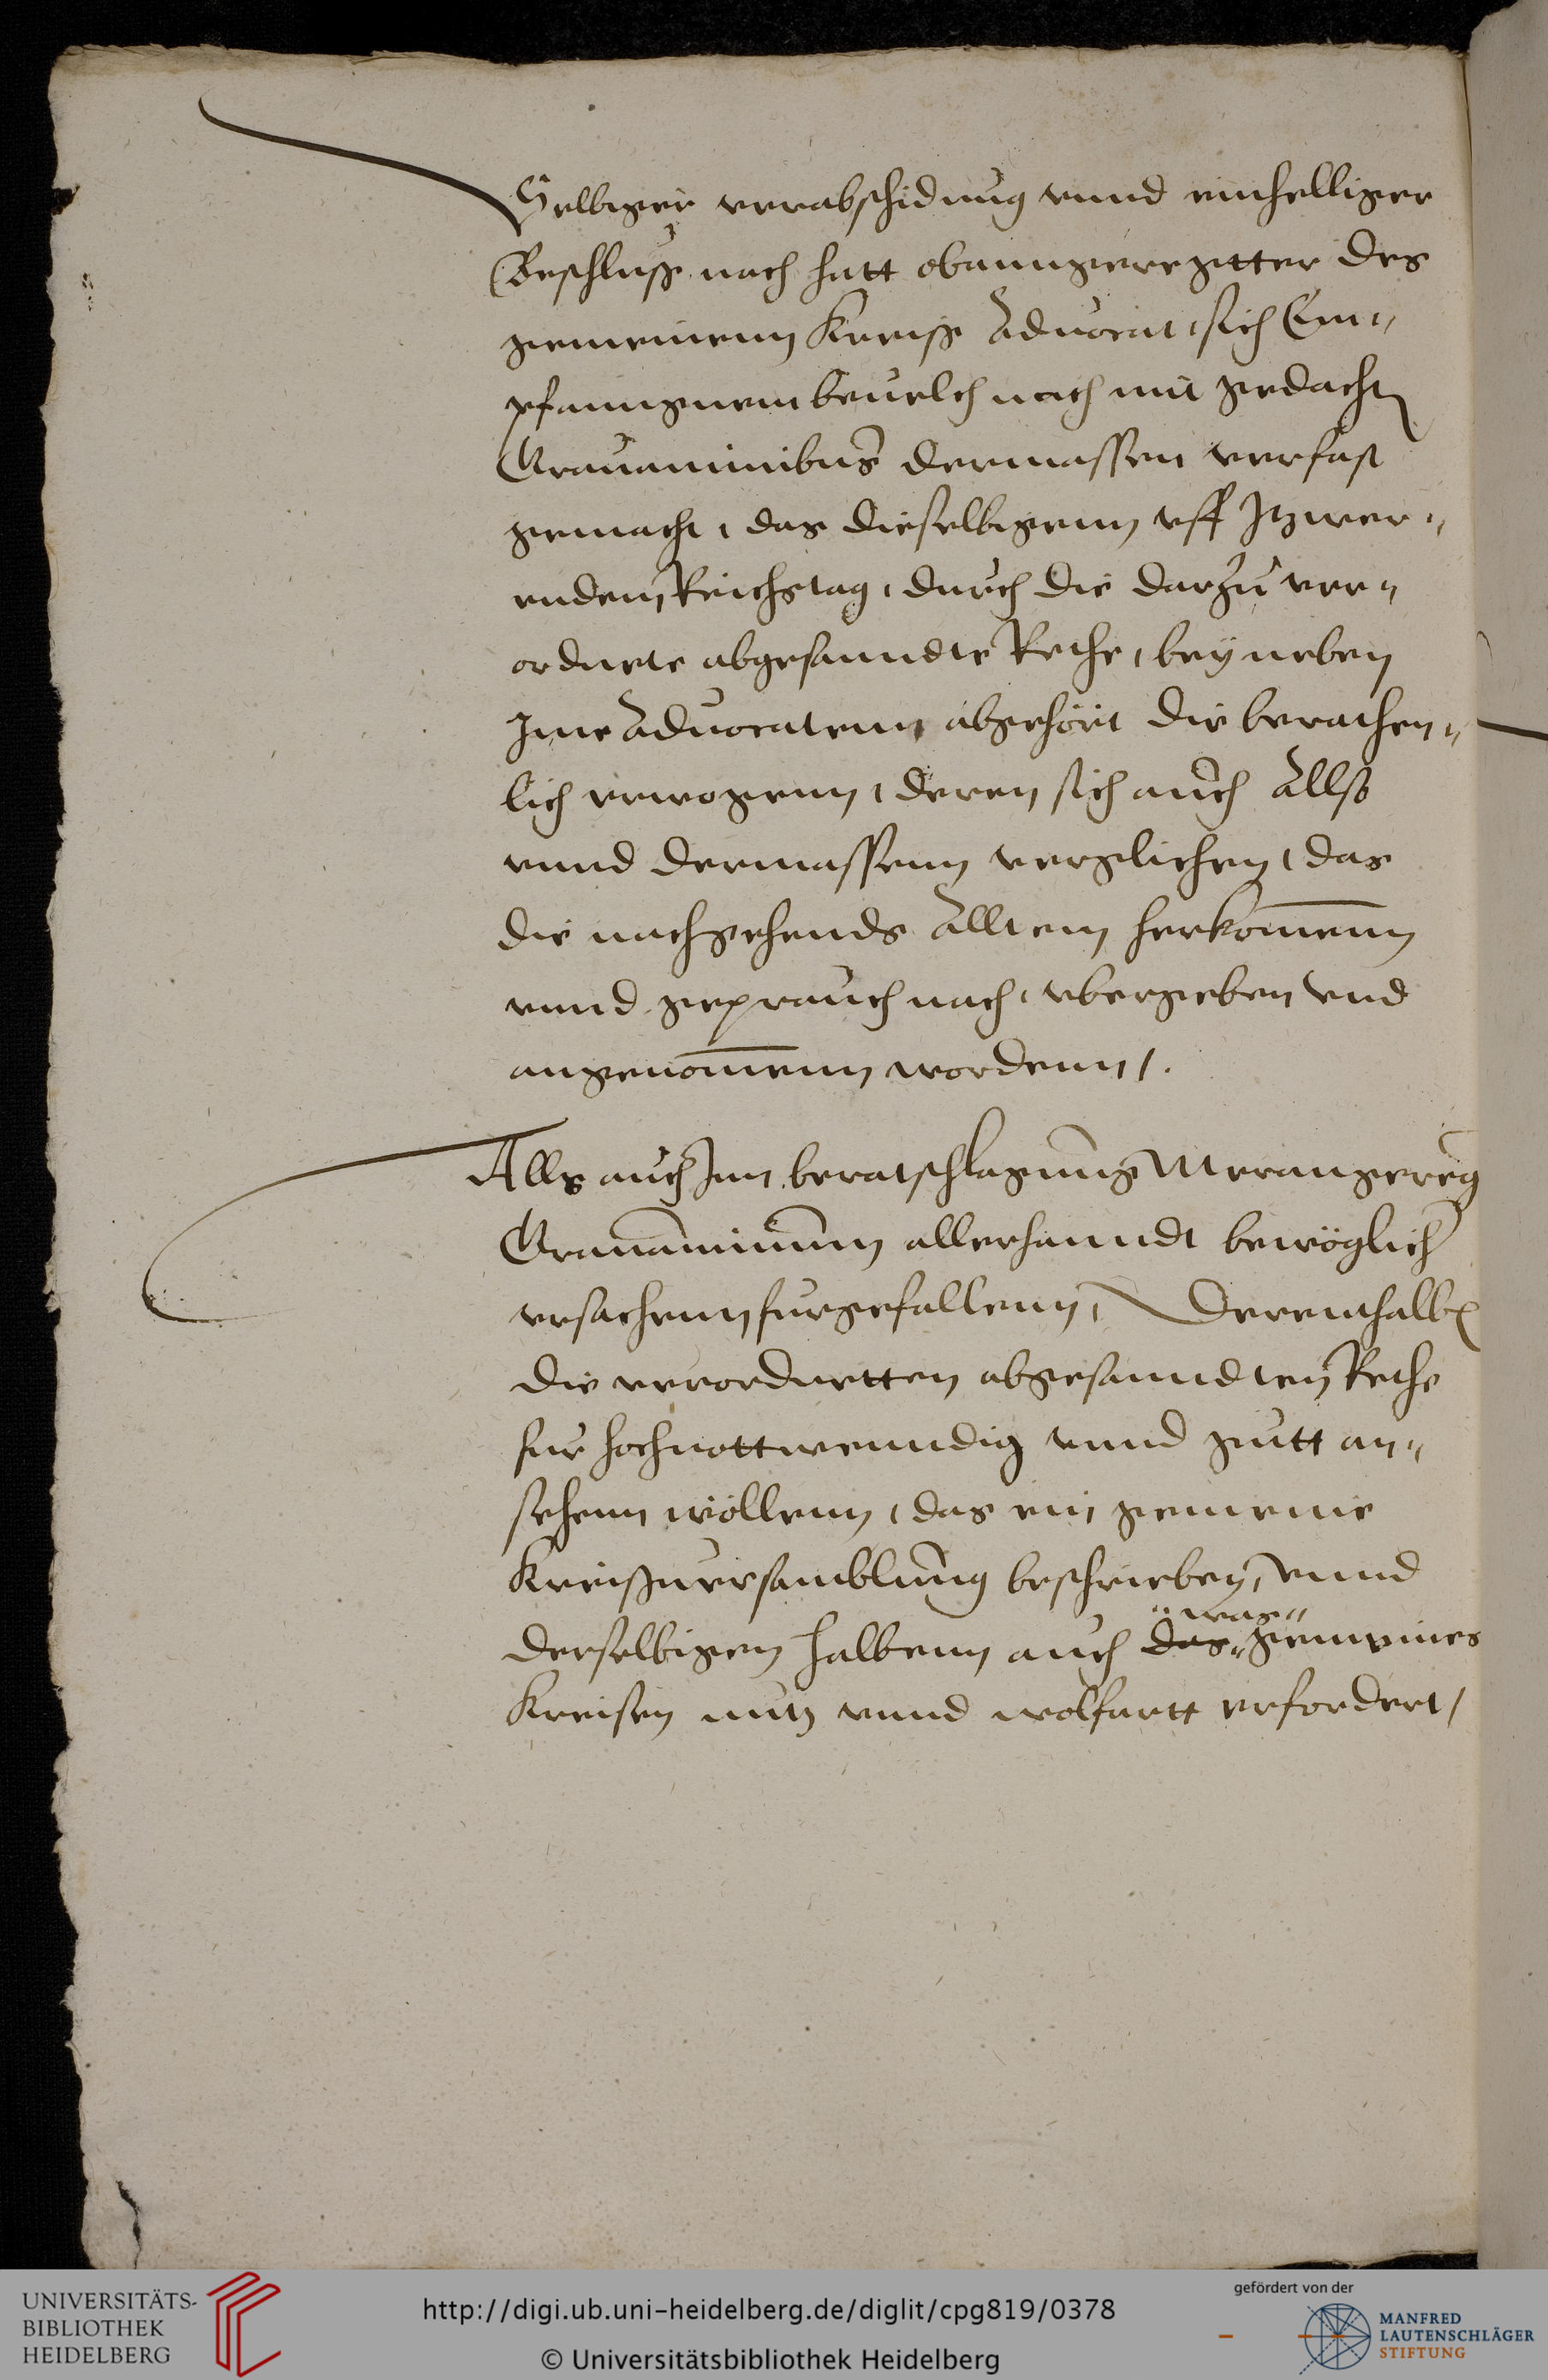 Selbiger verabschidung vnnd einhelliger
Beschluß nach hatt obanngeregtter des
gemeinenn Kreiß Aduocat, sich Em„
pfanngnem beuelch nach mit gedachtn
Grauaminibus dermassen verfast
gemacht, das dieselbigenn vff Itzwer„
enden Reichstag, durch die darzu ver„
ordnete abgesanndte Rethe, bey neben
Ime Aduocatenn abgehört die berathen„
lich erwogenn, deren sich auch Allso
vnnd dermassenn verglichen, das
die nachgehends Alltem herkomenn
vnnd geprauch nach, vbergeben vnd
angenomenn wordenn /.
Alls auch Inn beratschlagung Merangereg
Grauaminum allerhanndt bewöglich
vrsachenn furgefallenn, Derenthalb
die verordnetten abgesanndten Rethe
fur hochnottwenndig vnnd gutt an„
sehenn wöllenn, das ein gemeine
Kreißuersamblung beschrieben, vnnd
„ was „
derselbigen halbenn auch das „ gemeines
Kreisen nutz vnnd wolfartt erfordert /
UNIVERSITÄTS-
BIBLIOTHEK
HEIDELBERG
http://digi.ub.uni-heidelberg.de/diglit/cpg819/0378
© Universitätsbibliothek Heidelberg
gefördert von der
MANFRED
LAUTENSCHLÄGER
STIFTUNG